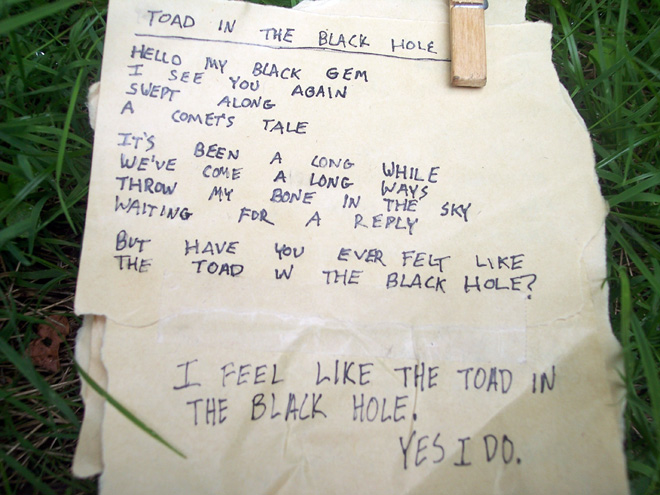 TOAD IN THE BLACK HOLE
HELLO MY BLACK GEM
I SEE YOU AGAIN
SWEPT ALONG
A COMETS TALE
IT'S BEEN A LONG WHILE
WE'VE COME A LONG WAYS
THROW MY BONE IN THE SKY
WAITING FOR A REPLY
BUT HAVE YOU EVER FELT LIKE
THE TOAD IN THE BLACK HOLE?
I FEEL LIKE THE TOAD IN
THE BLACK HOLE.
YES I DO.